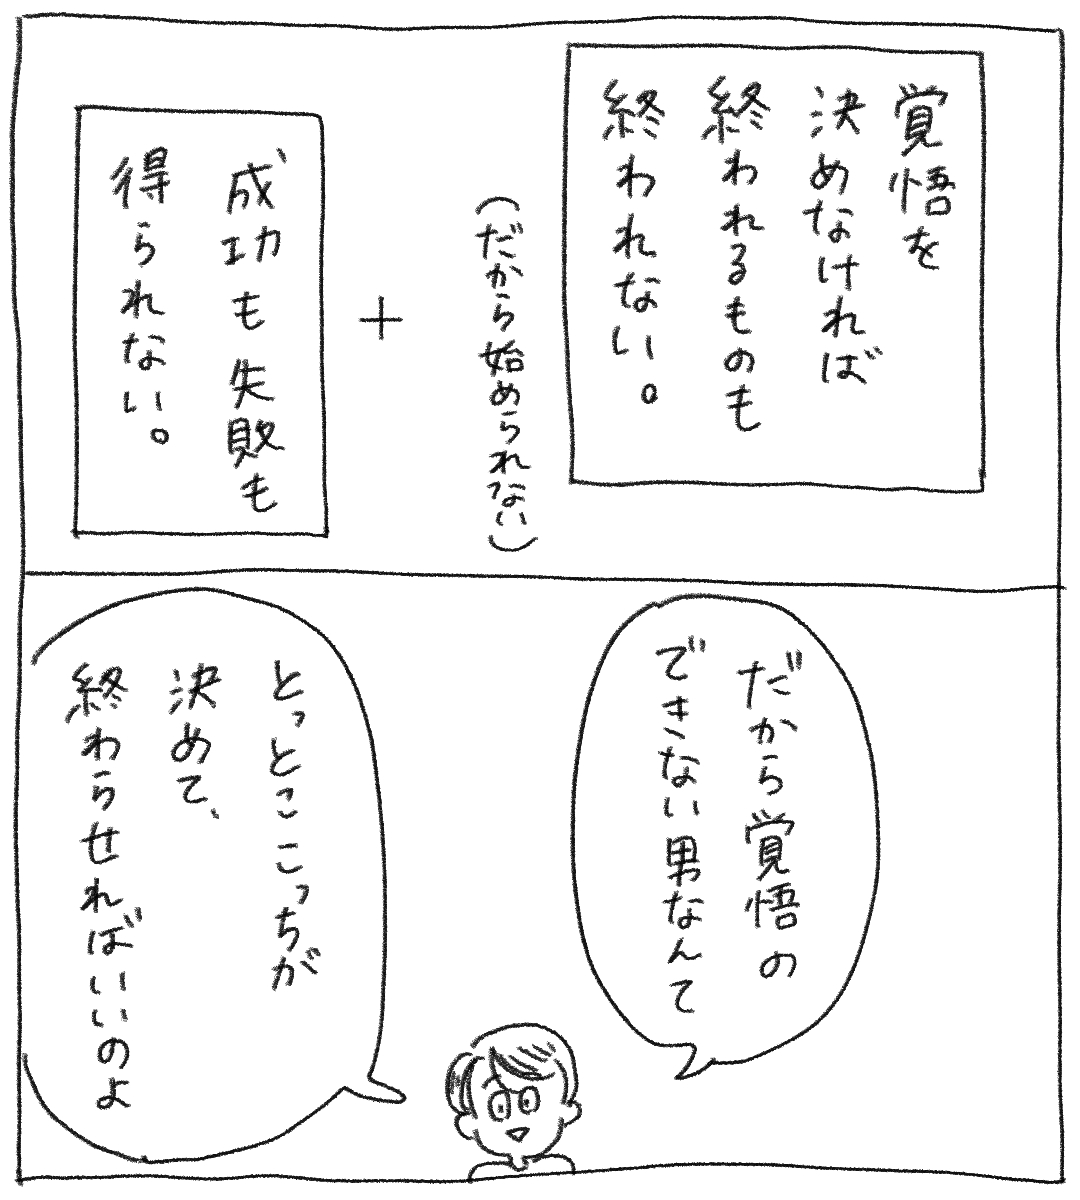 覚悟を
決めなければ
終われるものも
終われない。
(だから始められない)
+
成功も失敗も
得られない。
だから覚悟の
できない男なんて
とっとこっちが
決めて、
終わらせればいいのよ